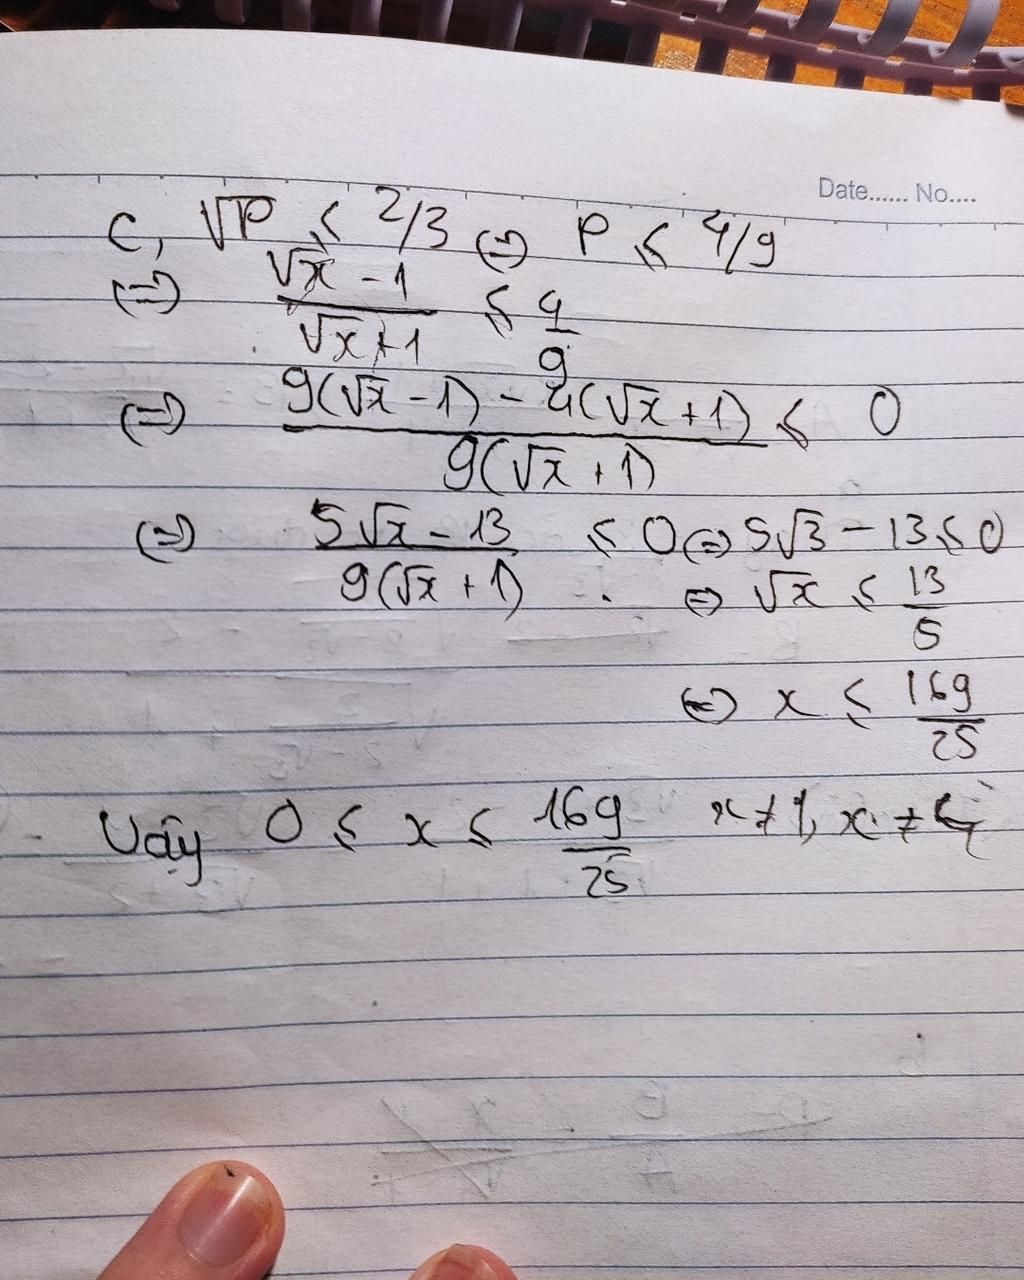 Date...... No....
c, √P ≤ 2/3 ⇔ P ≤ 4/9
⇔ (√x - 1)/(√x + 1) ≤ 4/9
⇔ (9(√x - 1) - 4(√x + 1))/(9(√x + 1)) ≤ 0
⇔ (5√x - 13)/(9(√x + 1)) ≤ 0 ⇔ 5√3 - 13 ≤ 0
⇔ √x ≤ 13/5
⇔ x ≤ 169/25
Vậy 0 ≤ x ≤ 169/25 x ≠ 1, x ≠ 4